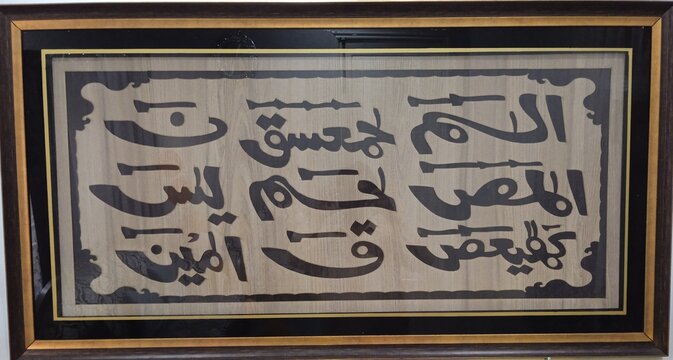 الٓمٓ حٰمٓعٓسٓقٓ نٓ
الٓمٓصٓ حٰمٓ یٰسٓ
كٓهٰیٰعٓصٓ قٓ اٰمین